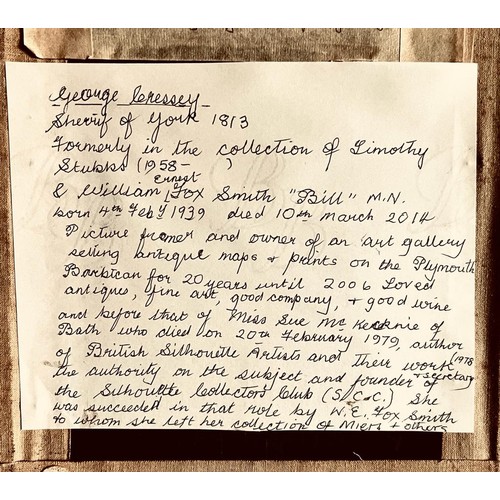 George Cressey
Sheriff of York 1813
Formerly in the collection of Timothy
Stubbs (1958-      )
Ernest
& William / Fox Smith "Bill" M.N.
born 4th Feby 1939 died 10th March 2014
Picture framer and owner of an art gallery
selling antique maps & prints on the Plymouth
Barbican for 20 years until 2006 Loved
antiques, fine art, good company, & good wine
and before that of Miss Sue McKechnie of
Bath who died on 20th February 1979, author
of British Silhouette Artists and Their work (1978
the authority on the subject and founder of
& secretary
the Silhouette Collectors Club (S.C.C.) She
was succeeded in that role by W.E. Fox Smith
to whom she left her collection of Miers & others